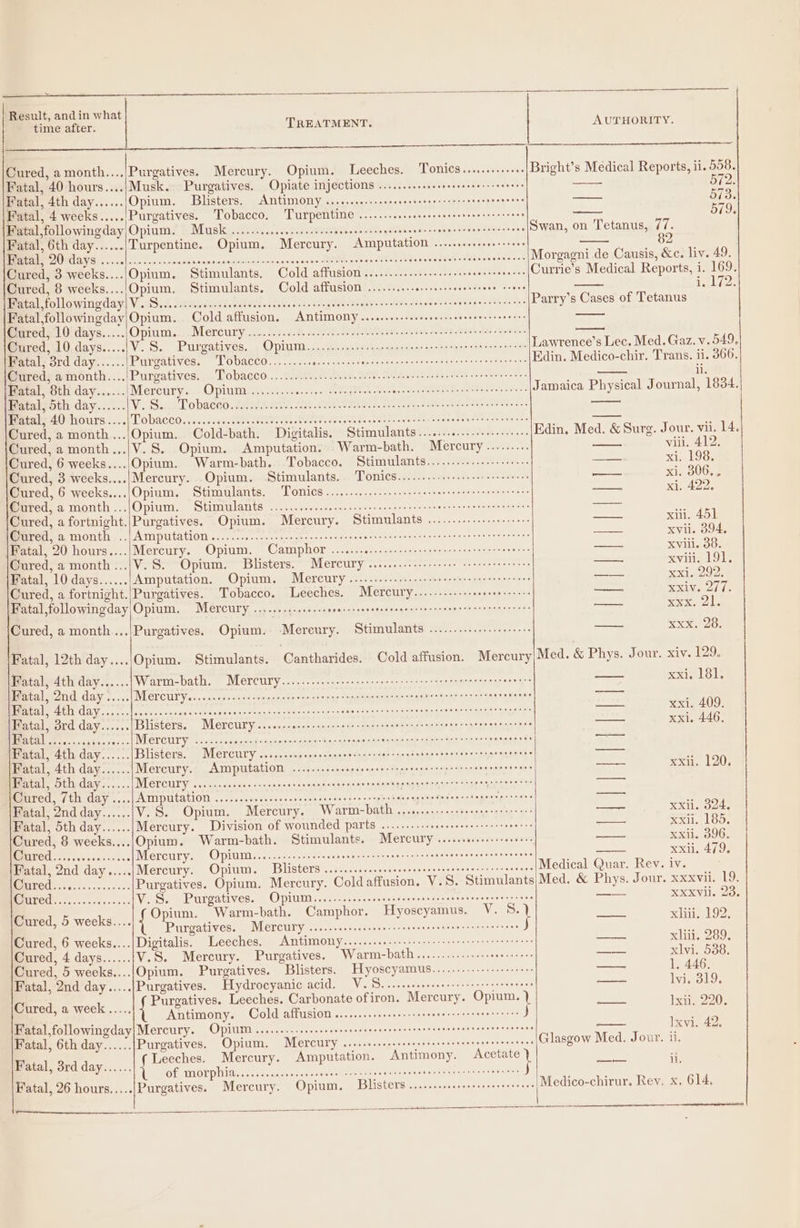 Result, and in what time after. TREATMENT. AUTHORITY.
Cured, a month.... Purgatives. Mercury. Opium. Leeches. Tonics............ Bright's Medical Reports, ii. 558.
Fatal, 40 hours.... Musk. Purgatives. Opiate injections .............. —— 572.
Fatal, 4th day...... Opium. Blisters. Antimony .............. —— 573.
Fatal, 4 weeks..... Purgatives. Tobacco. Turpentine .............. —— 579.
Fatal, followingday Opium. Musk .............. Swan, on Tetanus, 77.
Fatal, 6th day...... Turpentine. Opium. Mercury. Amputation .............. —— 82
Fatal, 20 days ..... .............. Morgagni de Causis, &c. liv. 49.
Cured, 3 weeks.... Opium. Stimulants. Cold affusion .............. Currie's Medical Reports, i. 169.
Cured, 8 weeks.... Opium. Stimulants. Cold affusion .............. —— i. 172.
Fatal, followingday V. S. .............. Parry's Cases of Tetanus
Fatal, followingday Opium. Cold affusion. Antimony .............. ——
Cured, 10 days..... Opium. Mercury .............. ——
Cured, 10 days..... V. S. Purgatives. Opium .............. Lawrence's Lec. Med. Gaz. v. 549.
Fatal, 3rd day...... Purgatives. Tobacco .............. Edin. Medico-chir. Trans. ii. 366.
Cured, a month.... Purgatives. Tobacco .............. —— ii.
Fatal, 8th day...... Mercury. Opium .............. Jamaica Physical Journal, 1834.
Fatal, 5th day...... V. S. Tobacco .............. ——
Fatal, 40 hours.... Tobacco .............. ——
Cured, a month ... Opium. Cold-bath. Digitalis. Stimulants .............. Edin. Med. & Surg. Jour. vii. 14.
Cured, a month ... V. S. Opium. Amputation. Warm-bath. Mercury ......... —— viii. 412.
Cured, 6 weeks.... Opium. Warm-bath. Tobacco. Stimulants .............. —— xi. 198.
Cured, 3 weeks.... Mercury. Opium. Stimulants. Tonics .............. —— xi. 306.
Cured, 6 weeks.... Opium. Stimulants. Tonics .............. —— xi. 422.
Cured, a month ... Opium. Stimulants .............. ——
Cured, a fortnight. Purgatives. Opium. Mercury. Stimulants .............. —— xiii. 451
Cured, a month .. Amputation .............. —— xvii. 394.
Fatal, 20 hours.... Mercury. Opium. Camphor .............. —— xviii. 38.
Cured, a month ... V. S. Opium. Blisters. Mercury .............. —— xviii. 191.
Fatal, 10 days...... Amputation. Opium. Mercury .............. —— xxi. 292.
Cured, a fortnight. Purgatives. Tobacco. Leeches. Mercury .............. —— xxiv. 277.
Fatal, followingday Opium. Mercury .............. —— xxx. 21.
Cured, a month ... Purgatives. Opium. Mercury. Stimulants .............. —— xxx. 28.
Fatal, 12th day.... Opium. Stimulants. Cantharides. Cold affusion. Mercury Med. & Phys. Jour. xiv. 129.
Fatal, 4th day...... Warm-bath. Mercury .............. —— xxi. 181.
Fatal, 2nd day ..... Mercury .............. ——
Fatal, 4th day...... .............. —— xxi. 409.
Fatal, 3rd day...... Blisters. Mercury .............. —— xxi. 446.
Fatal .............. Mercury .............. ——
Fatal, 4th day...... Blisters. Mercury .............. ——
Fatal, 4th day...... Mercury. Amputation .............. —— xxii. 120.
Fatal, 5th day...... Mercury .............. ——
Cured, 7th day .... Amputation .............. ——
Fatal, 2nd day...... V. S. Opium. Mercury. Warm-bath .............. —— xxii. 324.
Fatal, 5th day...... Mercury. Division of wounded parts .............. —— xxii. 185.
Cured, 8 weeks.... Opium. Warm-bath. Stimulants. Mercury .............. —— xxii. 396.
Cured .............. Mercury. Opium .............. —— xxii. 479.
Fatal, 2nd day ..... Mercury. Opium. Blisters .............. Medical Quar. Rev. iv.
Cured .............. Purgatives. Opium. Mercury. Cold affusion. V. S. Stimulants Med. & Phys. Jour. xxxvii. 19.
Cured .............. V. S. Purgatives. Opium .............. —— xxxvii. 23.
Cured, 5 weeks.... { Opium. Warm-bath. Camphor. Hyoscyamus. V. S. } —— xliii. 192.
Purgatives. Mercury ..............
Cured, 6 weeks.... Digitalis. Leeches. Antimony .............. —— xliii. 289.
Cured, 4 days...... V. S. Mercury. Purgatives. Warm-bath .............. —— xlvi. 538.
Cured, 5 weeks.... Opium. Purgatives. Blisters. Hyoscyamus .............. —— l. 446.
Fatal, 2nd day ..... Purgatives. Hydrocyanic acid. V. S. .............. —— lvi. 319.
Cured, a week ..... { Purgatives. Leeches. Carbonate of iron. Mercury. Opium. } —— lxii. 220.
Antimony. Cold affusion ..............
Fatal, followingday Mercury. Opium .............. —— lxvi. 42.
Fatal, 6th day...... Purgatives. Opium. Mercury .............. Glasgow Med. Jour. ii.
Fatal, 3rd day...... { Leeches. Mercury. Amputation. Antimony. Acetate } —— ii.
of morphia ..............
Fatal, 26 hours..... Purgatives. Mercury. Opium. Blisters .............. Medico-chirur. Rev. x. 614.